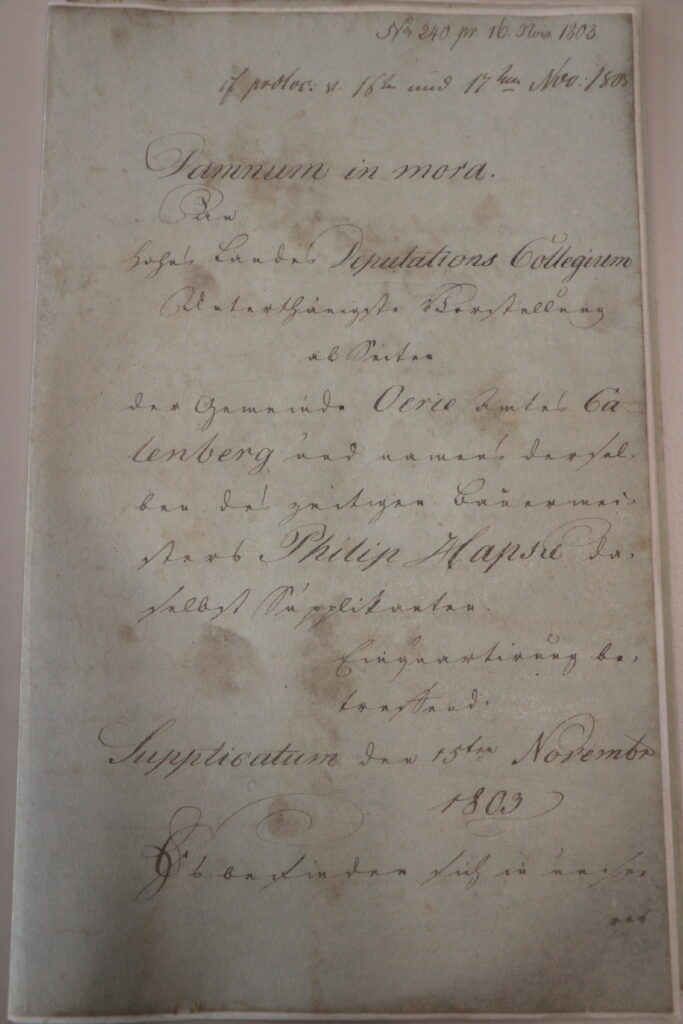 No 240. pr. 16. Nov. 1803
cf protoc: v. 16ten und 17ten Nov: 1803
Damnum in mora.
An
hohes Landes Deputations Collegium
Unterthänigste Vorstellung
ab Seiten
der Gemeinde Oerie Amtes Ca-
lenberg und namens dersel-
ben des zeitigen Bauermei-
sters Philip Hapke da-
selbst Supplikanten.
Einquartirung be-
treffend.
Supplicatum den 15ten Novembr
1803
Es befinden sich in unser